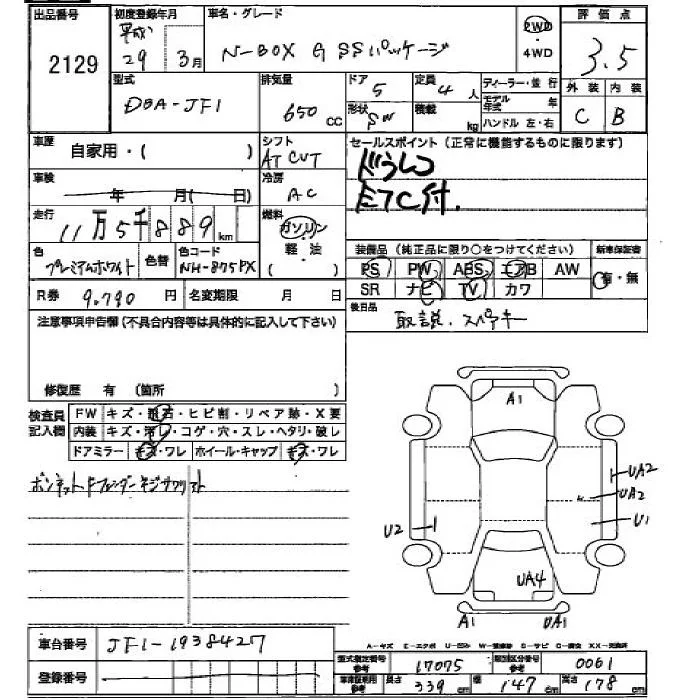 出品番号 初度登録年月 車名・グレード 評価点
2129 平成 29 3月 N-BOX G SSパッケージ 2WD・4WD 3.5
型式 排気量 ドア 定員 ディーラー・並行 外装 内装
DBA-JF1 650cc 5 4人 モデル年式 年 C B
形状 SW 積載 kg ハンドル 左・右
車歴 自家用・( ) シフト AT CVT セールスポイント(正常に機能するものに限ります)
車検 年 月( 日) 冷房 AC ドラレコ
ETC付.
走行 11万5千889km 燃料 ガソリン・軽・油( )
色 プレミアムホワイト 色替 色コード NH-875PX 装備品(純正品に限り○をつけてください) 新車保証書
PS PW ABS エアB AW 有・無
R券 9,790円 名変期限 月 日 SR ナビ TV カワ
注意事項申告欄(不具合内容等は具体的に記入して下さい) 後日品 取説.スペアキー
修復歴 有 (箇所 )
検査員記入欄 FW キズ・飛石・ヒビ割・リペア跡・X要
内装 キズ・汚レ・コゲ・穴・スレ・ヘタリ・破レ
ドアミラー キズ・ワレ ホイール・キャップ キズ・ワレ
A1
UA2
UA2
U2 U1
UA4
A1 UA1
車台番号 JF1-1938427 A-キズ E-エクボ U-凹み
型式指定番号 17075 類別区分番号 0061
登録番号 車庫証明用参考 長さ参考 339cm 幅 147cm 高さ 178cm